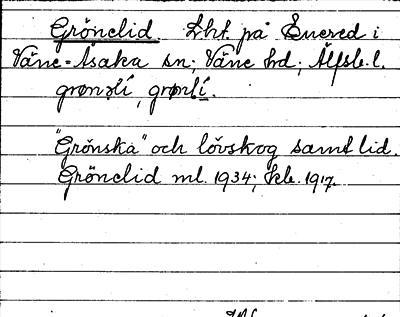 Grönelid. Lht. på Enered i
Väne-Åsaka sn; Väne hd; Älfsb. l.
"Grönska" och lövskog samt lid.
Grönelid ml. 1934; Jeb. 1917.